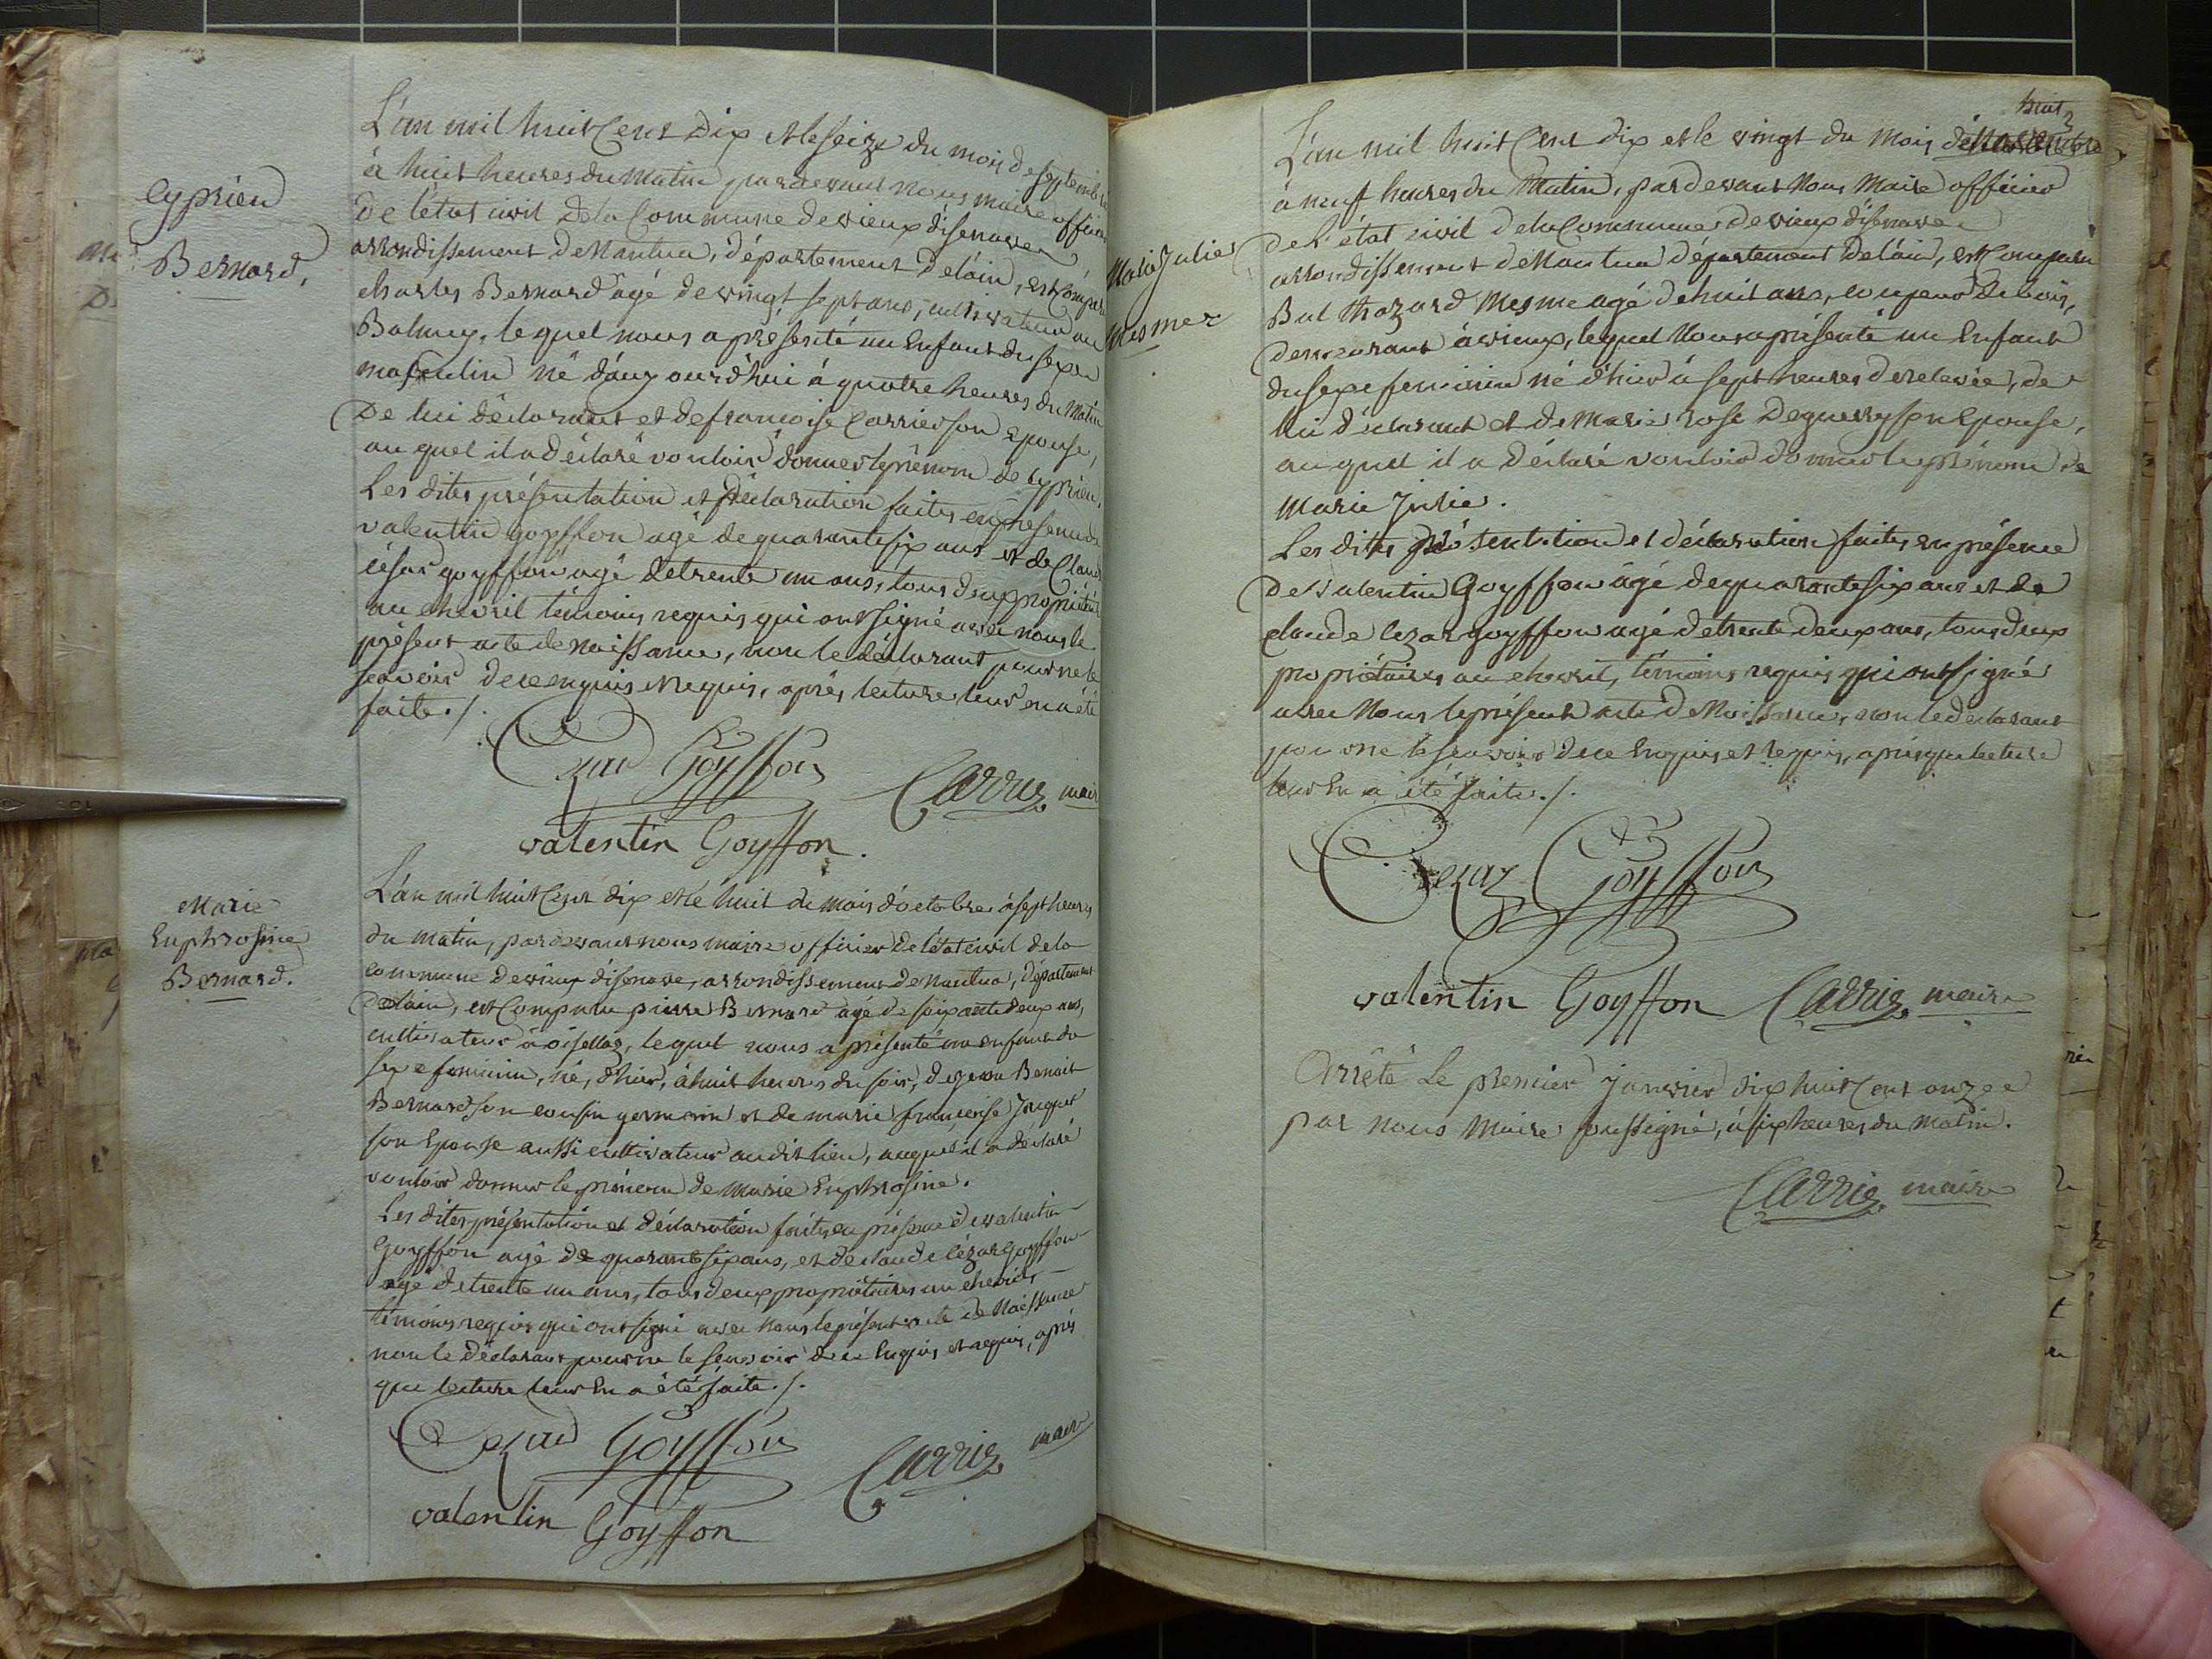 Cyprien
Bernard,
L'an mil huit Cent dix et le seize du mois de septembre
à huit heures du matin pardevant nous maire officier
de l'état civil de la Commune de vieux d'isenave
arrondissement de Nantua, département de l'ain, est Comparu
charles Bernard âgé de vingt sept ans, cultivateur au
Balmay, lequel nous a présenté un Enfant du sexe
masculin né d'aujourd'hui à quatre heures du Matin
De lui déclarant et de francoise Carrier son Epouse,
au quel il a déclaré vouloir donner le prénom de cyprien.
Les dites présentation et déclaration faites en presence de
valentin goyffon agé de quarante six ans et de Claude
césar goyffon agé de trente un ans, tous deux propriétaires
au chevril témoins requis qui ont signé avec nous le
présent acte de naissance, non le déclarant pour ne le
scavoir de ce enquis et requis, après lecture leur en a été
faite ./.
Cezar Goyffon
Carrier maire
valentin Goyffon.
Marie
Euphrosine
Bernard.
L'an mil huit Cent dix et le huit du mois d'octobre à sept heures
du matin, pardevant nous maire officier de l'état civil de la
commune de vieux d'isenave, arrondissement de nantua, département
De l'ain, est Comparu pierre Bernard agé de soixante deux ans,
cultivateur à oisellaz, lequel nous a présenté un enfant du
sexe feminin, né, d'hier, à huit heures du soir, de Benoit
Bernard son cousin germain et de marie francoise Juquet
son Epouse aussi cultivateur au dit lieu, auquel il a déclaré
vouloir donner le prénom de Marie Euphrosine.
Les dites présentation et déclaration faites en présence de valentin
Goyffon agé de quarante six ans, et de claude cézar Goyffon
agé de trente un ans, tous deux propriétaires au chevril,
témoins requis qui ont signé avec Nous le présent acte de Naissance
non le déclarant pour ne le scavoir de ce Enquis et requis, après
que lecture leur En a été faite ./.
Cezar Goyffon
Carrier maire
valentin Goyffon
Marie Julie
Mesmer
huit
L'an mil huit Cent dix et le vingt du Mois de
à neuf heures du Matin, pardevant Nous Maire officier
De l'état civil de la Commune de vieux d'isenave
arrondissement de Nantua département De l'ain, est Comparu
Balthazard Mesme agé de huit ans, coupeur de bois,
demeurant à vieux, lequel Nous a présenté un Enfant
du sexe feminin né d'hier à sept heures de relevée, de
lui déclarant et de Marie rose Deguerry son Epouse,
au quel il a Déclaré vouloir donner le prénom de
Marie Julie.
Les dites présentation et déclaration faites en présence
De valentin Goyffon âgé de quarante six ans et de
claude cezar goyffon agé de trente deux ans, tous deux
propriétaires au chevril, témoins requis qui ont signé
avec Nous le présent acte de Naissance, non le déclarant
pour ne le scavoir de ce Enquis et requis, après que lecture
leur En a été faite ./.
Cezar Goyffon
valentin Goyffon Carrier maire
Arrêté Le premier Janvier dix huit Cent onze
par nous Maire soussigné, à six heures du Matin.
Carrier maire